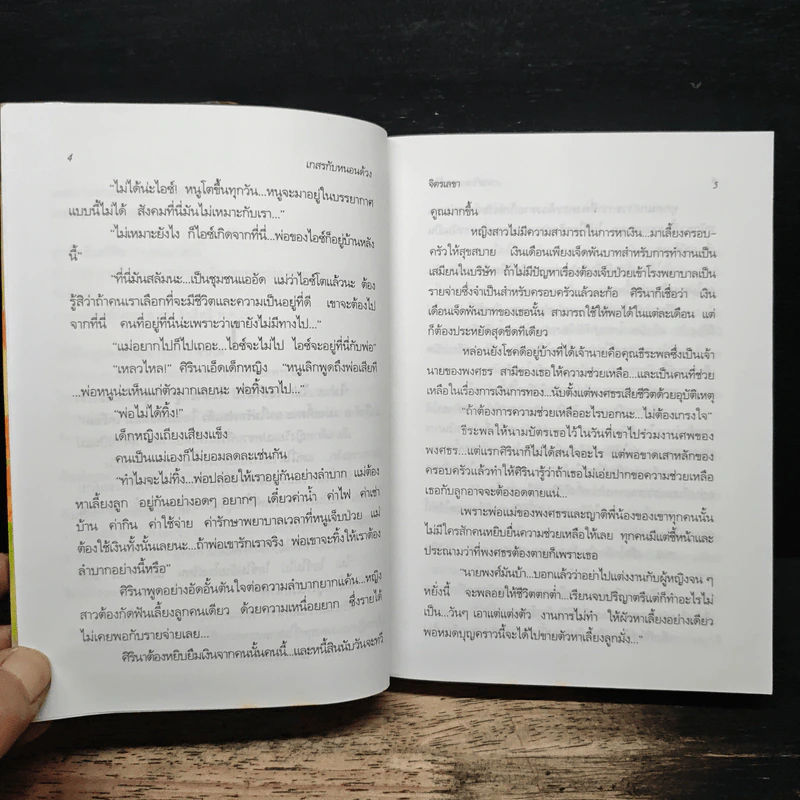 4
เกสรกับหนอนด้วง
“ไม่ได้น่ะไอซ์! หนูโตขึ้นทุกวัน...หนูจะมาอยู่ในบรรยากาศ
แบบนี้ไม่ได้ สังคมที่นี่มันไม่เหมาะกับเรา...”
“ไม่เหมาะยังไง ก็ไอซ์เกิดจากที่นี่...พ่อของไอซ์ก็อยู่บ้านหลัง
นี้”
“ที่นี่มันสลัมนะ...เป็นชุมชนแออัด แม่ว่าไอซ์โตแล้วนะ ต้อง
รู้สิว่าถ้าคนเราเลือกที่จะมีชีวิตและความเป็นอยู่ที่ดี เขาจะต้องไป
จากที่นี่ คนที่อยู่ที่นี่น่ะเพราะว่าเขายังไม่มีทางไป...”
“แม่อยากไปก็ไปเถอะ...ไอซ์จะไม่ไป ไอซ์จะอยู่ที่นี่กับพ่อ”
“เหลวไหล!” ศิรินาเอ็ดเด็กหญิง “หนูเลิกพูดถึงพ่อเสียที
...พ่อหนูน่ะเห็นแก่ตัวมากเลยนะ พ่อทิ้งเราไป...”
“พ่อไม่ได้ทิ้ง!”
เด็กหญิงเถียงเสียงแข็ง
คนเป็นแม่เองก็ไม่ยอมลดละเช่นกัน
“ทำไมจะไม่ทิ้ง...พ่อปล่อยให้เราอยู่กันอย่างลำบาก แม่ต้อง
หาเลี้ยงลูก อยู่กันอย่างอดๆ อยากๆ เดี๋ยวค่าน้ำ ค่าไฟ ค่าเช่า
บ้าน ค่ากิน ค่าใช้จ่าย ค่ารักษาพยาบาลเวลาที่หนูเจ็บป่วย แม่
ต้องใช้เงินทั้งนั้นเลยนะ...ถ้าพ่อเขารักเราจริง พ่อเขาจะทิ้งให้เราต้อง
ลำบากอย่างนี้หรือ”
ศิรินาพูดอย่างอัดอั้นตันใจต่อความลำบากยากแค้น...หญิง
สาวต้องกัดฟันเลี้ยงลูกคนเดียว ด้วยความเหนื่อยยาก ซึ่งรายได้
ไม่เคยพอกับรายจ่ายเลย...
ศิรินาต้องหยิบยืมเงินจากคนนั้นคนนี้...และหนี้สินนับวันจะทวี
จิตรเลขา
5
คูณมากขึ้น
หญิงสาวไม่มีความสามารถในการหาเงิน...มาเลี้ยงครอบ-
ครัวให้สุขสบาย เงินเดือนเพียงเจ็ดพันบาทสำหรับการทำงานเป็น
เสมียนในบริษัท ถ้าไม่มีปัญหาเรื่องต้องเจ็บป่วยเข้าโรงพยาบาลเป็น
รายจ่ายซึ่งจำเป็นสำหรับครอบครัวแล้วละก้อ ศิรินาก็เชื่อว่า เงิน
เดือนเจ็ดพันบาทของเธอนั้น สามารถใช้ให้พอได้ในแต่ละเดือน แต่
ก็ต้องประหยัดสุดขีดทีเดียว
หล่อนยังโชคดีอยู่บ้างที่ได้เจ้านายคือคุณธีระพลซึ่งเป็นเจ้า
นายของพงศธร สามีของเธอให้ความช่วยเหลือ...และเป็นคนที่ช่วย
เหลือในเรื่องการเงินการทอง...นับตั้งแต่พงศธรเสียชีวิตด้วยอุบัติเหตุ
“ถ้าต้องการความช่วยเหลืออะไรบอกนะ...ไม่ต้องเกรงใจ”
ธีระพลให้นามบัตรเธอไว้ในวันที่เขาไปร่วมงานศพของ
พงศธร...แต่แรกศิรินาก็ไม่ได้สนใจอะไร แต่พอขาดเสาหลักของ
ครอบครัวแล้วทำให้ศิรินารู้ว่าถ้าเธอไม่เอ่ยปากขอความช่วยเหลือ
เธอกับลูกอาจจะต้องอดตายแน่...
เพราะพ่อแม่ของพงศธรและญาติพี่น้องของเขาทุกคนนั้น
ไม่มีใครสักคนหยิบยื่นความช่วยเหลือให้เลย ทุกคนมีแต่ชี้หน้าและ
ประณามว่าที่พงศธรต้องตายก็เพราะเธอ
“นายพงศ์มันบ้า...บอกแล้วว่าอย่าไปแต่งงานกับผู้หญิงจน ๆ
หยั่งนี้ จะพลอยให้ชีวิตตกต่ำ...เรียนจบปริญาตรีแต่ก็ทำอะไรไม่
เป็น...วันๆ เอาแต่แต่งตัว งานการไม่ทำ ให้ผัวหาเลี้ยงอย่างเดียว
พอหมดบุญคราวนี้จะได้ไปขายตัวหาเลี้ยงลูกมั่ง...”